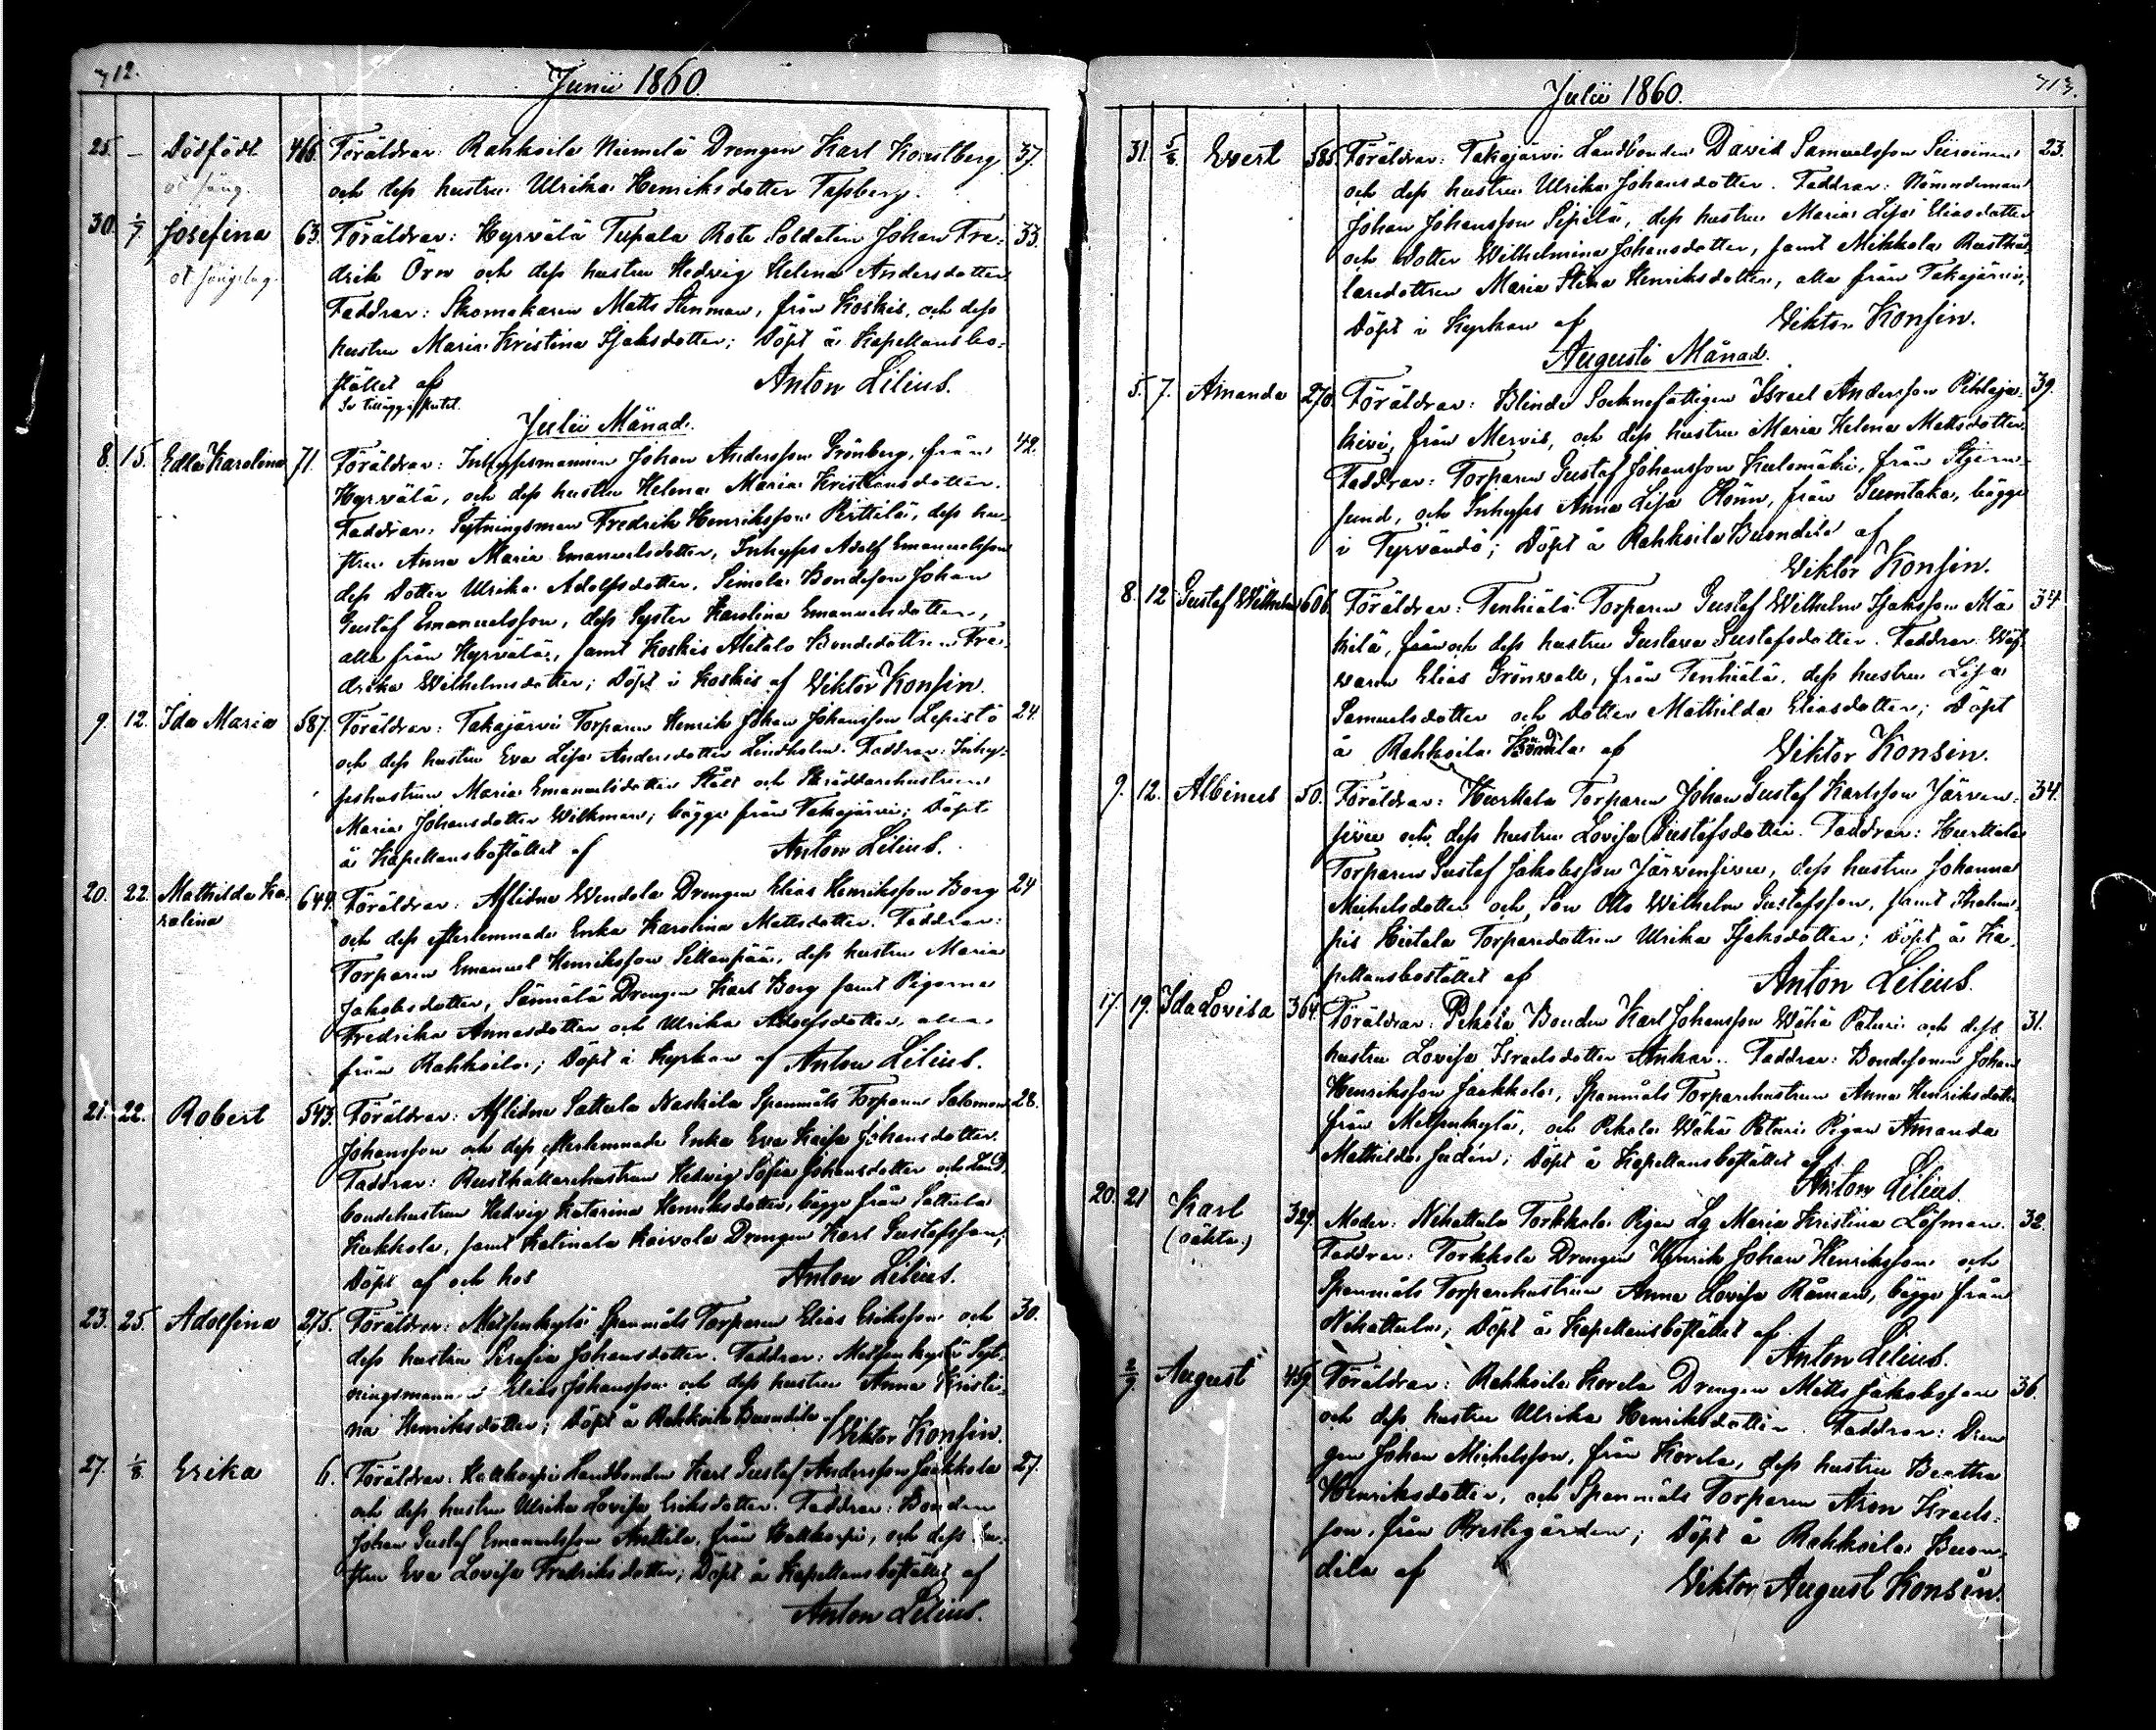 712.
Junii 1860.
25. — Dödfödt 466. Föräldrar: Rahkoila Niemelä Drengen Karl Konstberg 37.
och dess hustru Ulrika Henriksdotter Tapberg.
30. 1/7 Josefina 63. Föräldrar: Hyrvälä Tupala Rote Soldaten Johan Fre- 33.
drik Örn och dess hustru Hedvig Helena Andersdotter
Faddrar: Skomakaren Matts Stenman, från Koskis, och dess
hustru Maria Kristina Isaksdotter; Döpt å Kapellansbo-
stället af Anton Lilius.
Julii Månad.
8. 15. Edla Karolina 71. Föräldrar: Inhysesmannen Johan Andersson Grönberg, från 42.
Hyrvälä, och dess hustru Helena Maria Kristiansdotter.
Faddrar: Sytningsman Fredrik Henriksson Perttilä, dess hu-
stru Anna Maria Emanuelsdotter, Inhyses Adolf Emanuelsson
dess Dotter Ulrika Adolfsdotter, Simola Bondeson Johan
Gustaf Emanuelsson, dess Syster Karolina Emanuelsdotter,
alla från Hyrvälä, samt Koskis Alitalo Bondedottren Fre-
drika Wilhelmsdotter; Döpt i Koskis af Viktor Konsin.
9. 12. Ida Maria 587. Föräldrar: Takajärvi Torparen Henrik Johan Johansson Lepistö 24.
och dess hustru Eva Lisa Andersdotter Lindholm. Faddrar: Inhy-
seshustrun Maria Emanuelsdotter Stålt och Skräddarehustrun
Maria Johansdotter Wilkman; bägge från Takajärvi; Döpt
å Kapellansbostället af Anton Lilius.
20. 22. Mathilda Ka- 644. Föräldrar: Aflidne Wendola Drengen Elias Henriksson Borg 24
rolina och dess efterlemnade Enka Karolina Mattsdotter. Faddrar:
Torparen Emanuel Henriksson Sillanpää, dess hustru Maria
Jakobsdotter, Sännälä Drengen Karl Borg samt Pigorna
Fredrika Annasdotter och Ulrika Adolfsdotter, alla
från Rahkoila; Döpt i Kyrkan af Anton Lilius.
21. 22. Robert 543. Föräldrar: Aflidne Sattula Naskila Spanmåls Torparen Salomon 28.
Johansson och dess efterlemnade Enka Eva Kaisa Johansdotter.
Faddrar: Rusthållarehustrun Hedvig Sofia Johansdotter och Land-
bondehustrun Hedvig Katarina Henriksdotter, bägge från Sattula
Kukkola, samt Katinala Koivola Drengen Karl Gustafsson;
Döpt af och hos Anton Lilius.
23. 25. Adolfina 275. Föräldrar: Metsenkylä Spanmåls Torparen Elias Eriksson och 30.
dess hustru Serafia Johansdotter. Faddrar: Metsenkylä Syt-
ningsmannen Elias Johansson och dess hustru Anna Kristi-
na Henriksdotter; Döpt å Rahkoila Buondila af Viktor Konsin.
27. 1/8 Erika 6. Föräldrar: Kakkorpi Landbonden Karl Gustaf Andersson Jaakkola 27.
och dess hustru Ulrika Lovisa Eriksdotter. Faddrar: Bonden
Johan Gustaf Emanuelsson Anttila, från och dess hu-
stru Eva Lovisa Fredriksdotter; Döpt å Kapellansbostället af
Anton Lilius.
713.
Julii 1860.
31. 5/8 Evert 585. Föräldrar: Takajärvi Landbonden David Samuelsson Siiroinen 23.
och dess hustru Ulrika Johansdotter. Faddrar: Nämndeman
Johan Johansson Sipilä, dess hustru Maria Lisa Eliasdotter
och Dotter Wilhelmina Johansdotter, samt Mikkola Rusthål-
laredottren Maria Stina Henriksdotter, alla från Takajärvi;
Döpt i Kyrkan af Viktor Konsin.
Augusti Månad.
5. 7. Amanda 270. Föräldrar: Blinde Socknefattigen Israel Andersson Pihlaja- 39.
kivi, från Mervis, och dess hustru Maria Helena Mattsdotter.
Faddrar: Torparen Gustaf Johansson Kulomäki, från Stjern-
sund, och Inhyses Anna Lisa Rönn, från Suontaka, bägge
i Tyrvändö; Döpt å Rahkoila Buondila af
Viktor Konsin.
8. 12 Gustaf Wilhelm 606. Föräldrar: Tenhiälä Torparen Gustaf Wilhelm Isaksson Mä- 34.
kilä, från och dess hustru Gustava Gustafsdotter. Faddrar: Wäf-
waren Elias Grönwall, från Tenhiälä, dess hustru Lisa
Samuelsdotter och Dotter Mathilda Eliasdotter; Döpt
å Rahkoila af Viktor Konsin.
9. 12. Albinus 50. Föräldrar: Hurttala Torparen Johan Gustaf Karlsson Järven- 34.
sivu och dess hustru Lovisa Gustafsdotter. Faddrar: Hurttala
Torparen Gustaf Jakobsson Järvensivu, dess hustru Johanna
Michelsdotter och Son Otto Wilhelm Gustafsson, samt Ihalem-
pis Hiitala Torparedottren Ulrika Isaksdotter; Döpt å Ka-
pellansbostället af Anton Lilius.
17. 19. Ida Lovisa 364. Föräldrar: Pekola Bonden Karl Johansson Wähä Paturi och dess 31.
hustru Lovisa Israelsdotter Ankar. Faddrar: Bondesonen Johan
Henriksson Jaakkola, Spanmåls Torparehustrun Anna Henriksdotter
från Metsenkylä, och Pekola Wähä Paturi Pigan Amanda
Mathilda Judén; Döpt å Kapellansbostället af
Anton Lilius.
20. 21 Karl 329. Moder: Nihattula Torkkola Pigan Lg Maria Kristina Löfman. 32.
(oäkta.) Faddrar: Torkkola Drengen Henrik Johan Henriksson och
Spanmåls Torparehustrun Anna Lovisa Råman, bägge från
Nihattula; Döpt å Kapellansbostället af
Anton Lilius.
2/9 August 459. Föräldrar: Rahkoila Korela Drengen Matts Jakobsson 36.
och dess hustru Ulrika Henriksdotter. Faddrar: Dren-
gen Johan Michelsson, från Korela, dess hustru Beatha
Henriksdotter, och Spanmåls Torparen Aron Israels-
son, från Prestegården; Döpt å Rahkoila Buon-
dila af Viktor August Konsin.